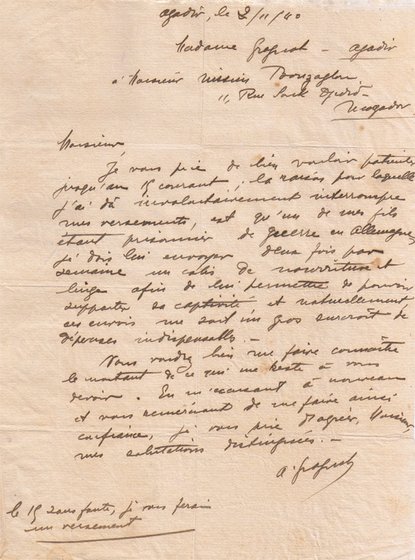 Agadir, le 2/11/40
Madame Gragnot - Agadir
à Monsieur Nissim Bouzaglou,
11, Rue Souk Djedid -
Mogador
Monsieur,
Je vous prie de bien vouloir patienter
jusqu'au 15 courant; la raison pour laquelle
j'ai dû involontairement interrompre
mes versements, est qu'un de mes fils
étant prisonnier de guerre en Allemagne
je dois lui envoyer deux fois par
semaine un colis de nourriture et
linge afin de lui permettre de pouvoir
supporter sa captivité et naturellement
ces envois me sont un gros surcroît de
dépenses indispensables. -
Vous voudrez bien me faire connaître
le montant de ce qui me reste à vous
devoir. En m'excusant à nouveau
et vous remerciant de me faire ainsi
confiance, je vous prie d'agréer, Monsieur
mes salutations distinguées. -
A. Gragnot
le 15 sans faute, je vous ferai
un versement